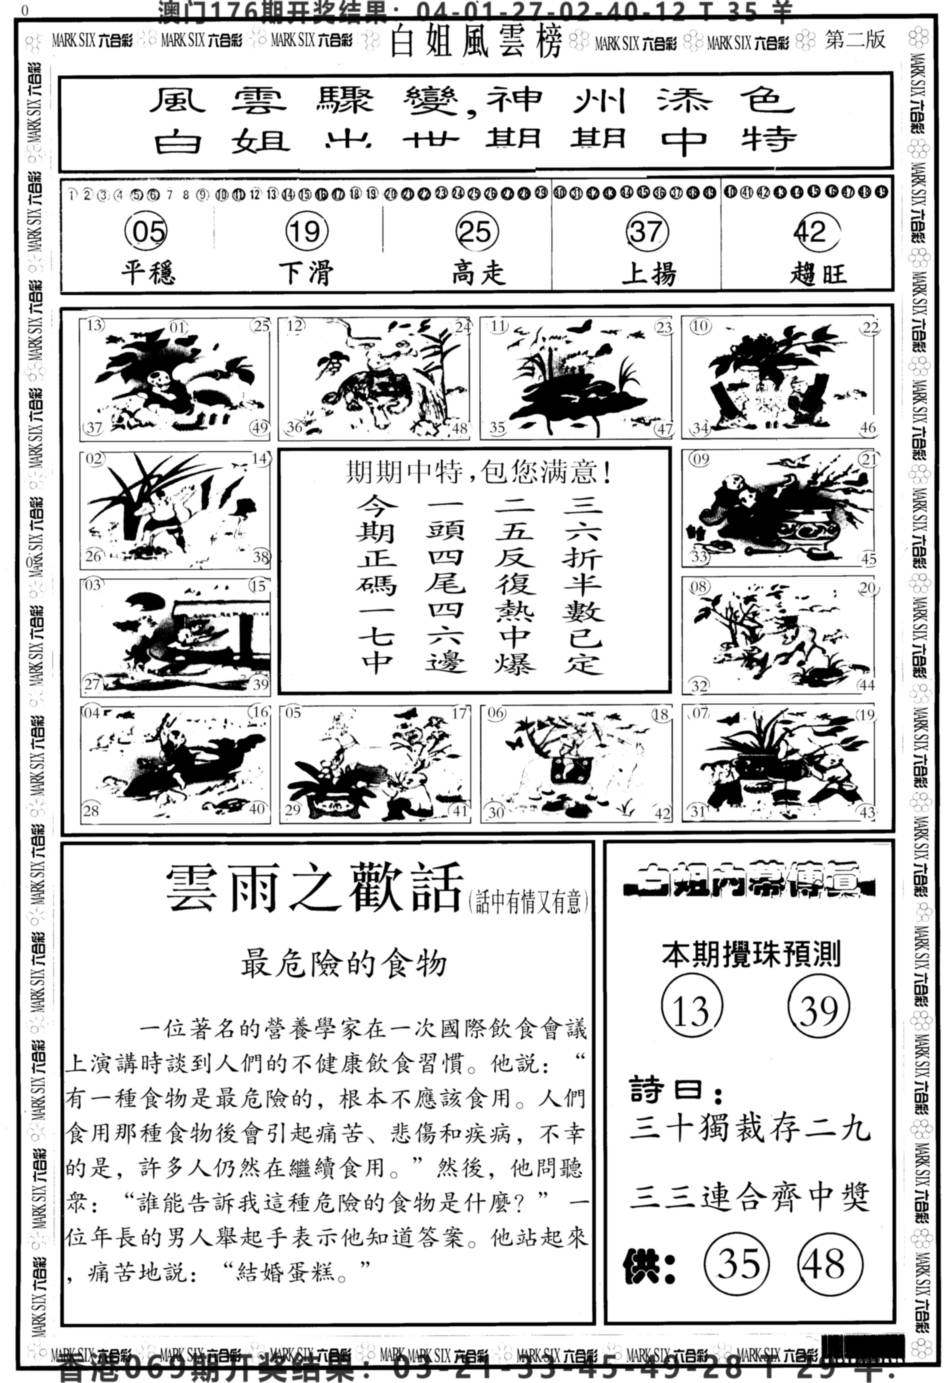 0
澳门176期开奖结果：04-01-27-02-40-12 T 35 羊
MARK SIX 六合彩 MARK SIX 六合彩 MARK SIX 六合彩 白姐風雲榜 MARK SIX 六合彩 MARK SIX 六合彩 第二版
風雲驟變,神州添色
白姐出世期期中特
1 2 3 4 5 6 7 8 9 10 11 12 13 14 15 16 17 18 19 20 21 22 23 24 25 26 27 28 29 30 31 32 33 34 35 36 37 38 39 40 41 42 43 44 45 46 47 48 49
05 19 25 37 42
平穩 下滑 高走 上揚 趨旺
13 01 25 12 24 11 23 10 22
37 49 36 48 35 47 34 46
02 14 09 21
26 38 33 45
03 15 08 20
27 39 32 44
04 16 05 17 06 18 07 19
28 40 29 41 30 42 31 43
期期中特,包您满意!
今期正碼一七中
一頭四尾四六邊
二五反復熱中爆
三六折半數已定
雲雨之歡話(話中有情又有意)
最危險的食物
一位著名的營養學家在一次國際飲食會議
上演講時談到人們的不健康飲食習慣。他説：“
有一種食物是最危險的，根本不應該食用。人們
食用那種食物後會引起痛苦、悲傷和疾病，不幸
的是，許多人仍然在繼續食用。”然後，他問聽
衆：“誰能告訴我這種危險的食物是什麼？”一
位年長的男人舉起手表示他知道答案。他站起來
，痛苦地説：“結婚蛋糕。”
白姐內幕傳真
本期攪珠預測
13 39
詩曰：
三十獨裁存二九
三三連合齊中獎
供： 35 48
MARK SIX 六合彩 MARK SIX 六合彩 MARK SIX 六合彩 MARK SIX 六合彩 MARK SIX 六合彩 MARK SIX 六合彩 MARK SIX 六合彩
香港069期开奖结果：03-21-33-45-49-28 T 29 羊.